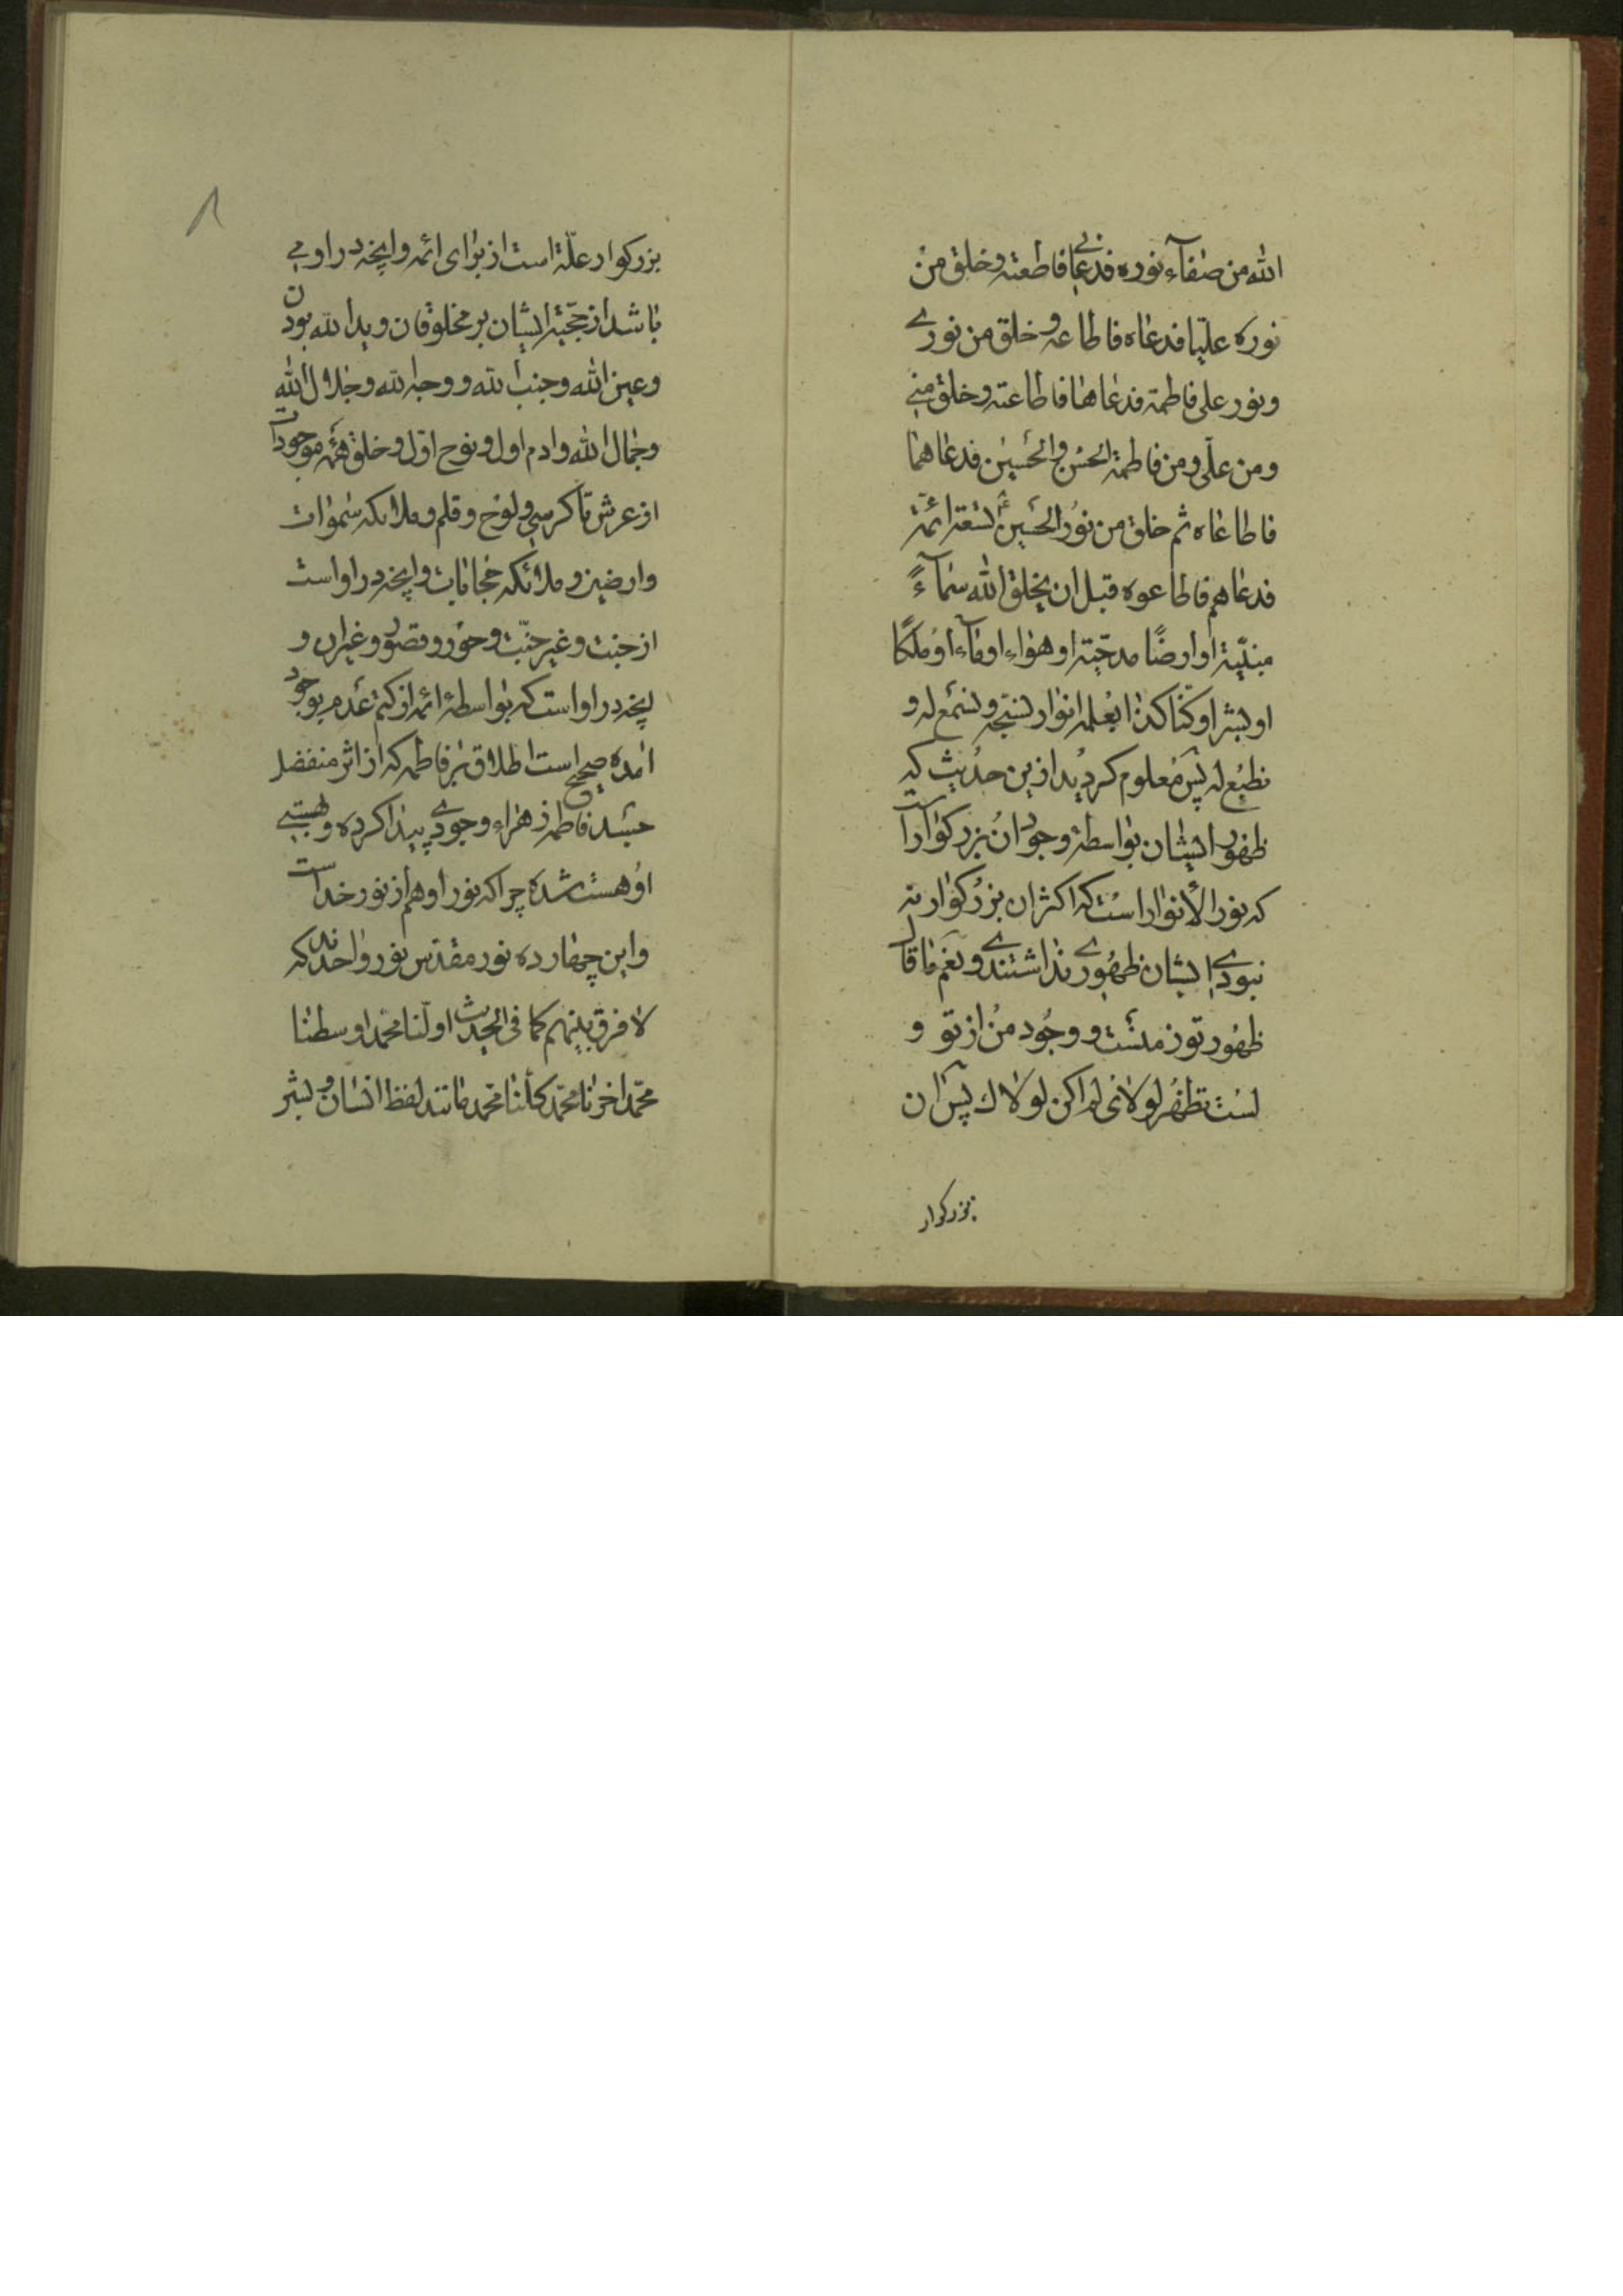 الله من صفآء نوره فدعانی فاطعته و خلق من
نوره علیّا فدعاه فاطاعه و خلق من نوری
و نور علی فاطمة فدعاها فاطاعته و خلق منی
و من علّی و من فاطمة الحسن و الحسین فدعاهما
فاطاعاه ثم خلق من نور الحسین تسعة ائمة
فدعاهم فاطاعوه قبل ان یخلق الله سمآءً
مبنیّة او ارضًا مدحیّة او هواء او مآء او ملکًا
او بشرا و کنّا کذا بعلمه انوار نسبحه و نسمع له و
نطیع له پس معلوم کردید ازین حدیث که
ظهور ایشان بواسطهٔ وجود ان بزرکوار است
که نور الأنوار است که اکثر ان بزرکوار نه
نبودی ایشان ظهوری نداشتندی و نعم ما قال
ظهور تو ز منست و وجود من از تو و
لست تظهر لولائی لم اکن لولاك پس ان
بزرکوار
۸
بزرکوار علّة است از برای ائمه و اپخه در او می
باشد از حجّیة ایشان بر مخلوقان و ید الله بودن
و عین الله و جنب الله و وجه الله و جلال الله
و جمال الله و ادم اول و نوح اوّل و خلق همه موجودات
از عرش تا کرسی و لوح و قلم و ملائکه سموات
و ارضین و ملائکه حجابات و اپخه در او است
از جنت و غیر جنّت و حور و قصور و غیر ان و
اپخه در او است که بواسطهٔ ائمه از کتم عدم بوجود
امده صحیح است اطلاق بر فاطمه که از اثر منفصل
حسد فاطمه زهراء وجودی پیدا کرده و هستی
او هست شده چرا که نور او هم از نور خداست
و این چهارده نور مقدّس نور واحدند که
لا فرق بینهم کما فی الحدیث اولّنا محمّد اوسطنا
محمّد اخرنا محمّد کلّنا محمّد مانند لفظ انسان و بشر